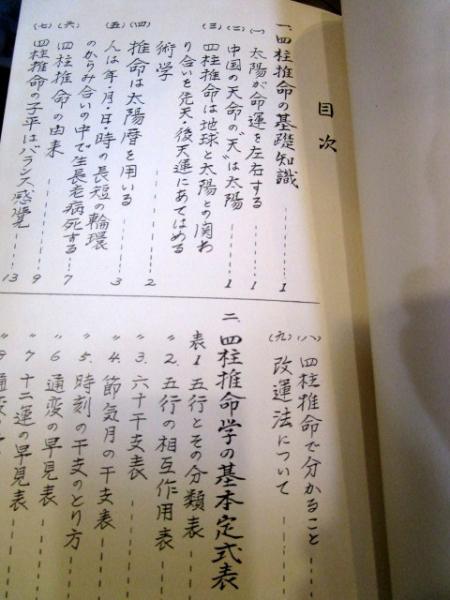 目次
一、四柱推命の基礎知識------1
(一) 太陽が命運を左右する------1
(二) 中国の天命の"天"は太陽------1
(三) 四柱推命は地球と太陽との関わ
り合いを先天・後天運にあてはめる
術学------2
(四) 推命は太陽暦を用いる------3
(五) 人は年・月・日・時の長短の輪環
のからみ合いの中で生長老病死する---7
(六) 四柱推命の由来------9
(七) 四柱推命の子平はバランス感覚------13
(八) 四柱推命で分かること------
(九) 改運法について------
二、四柱推命学の基本定式表
表1 五行とその分類表------
〃2. 五行の相互作用表------
〃3. 六十干支表------
〃4. 節気月の干支表------
〃5. 時刻の干支のとり方------
〃6 通変の早見表------
〃7 十二運の早見表------